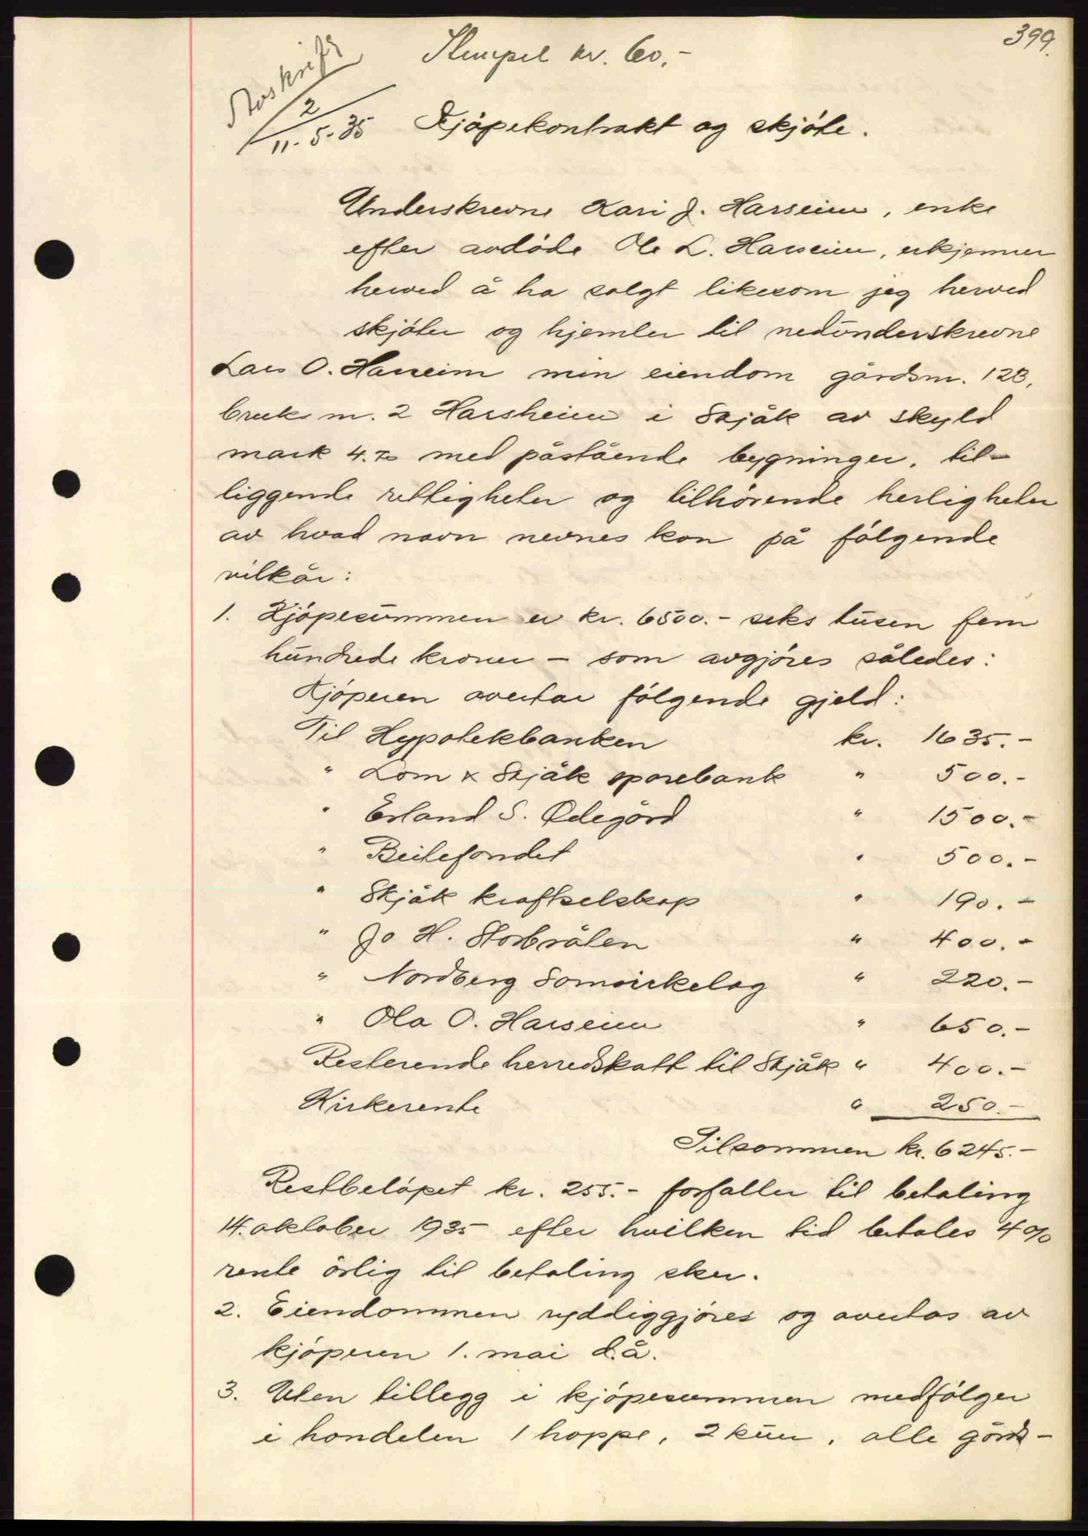 399.
Stempel kr. 60.-
Avskrift
2
11.-5-35
Kjöpekontrakt og skjöte.
Underskrevne Kari J. Harseim, enke
efter avdöde Ole L. Harseim, erkjenner
herved å ha solgt likesom jeg herved
skjöter og hjemler til nedunderskrevne
Lars O. Harseim min eiendom gårdsnr. 128,
bruks nr. 2 Harsheim i Skjåk av skyld
mark 4.70 med påstående bygninger, til-
liggende rettigheter og tilhörende herligheter
av hvad navn nevnes kan på fölgende
vilkår:
1. Kjöpesummen er kr. 6500.- seks tusen fem
hundrede kroner - som avgjöres således:
Kjöperen overtar fölgende gjeld:
Til Hypotekbanken kr. 1635.-
" Lom & Skjåk sparebank " 500.-
" Erland S. Ödegård " 1500.-
" Beitefondet " 500.-
" Skjåk kraftselskap " 190.-
" Jo H. Storbrålen " 400.-
" Nordberg Samvirkelag " 220.-
" Ola O. Harseim " 650.-
Resterende herredskatt til Skjåk " 400.-
Kirkerente " 250.-
Tilsammen kr. 6245.-
Restbelöpet kr. 255.- forfaller til betaling
14. oktober 1935 efter hvilken tid betales 4%
rente årlig til betaling sker.
2. Eiendommen ryddiggjöres og overtas av
kjöperen 1. mai d.å.
3. Uten tillegg i kjöpesummen medfölger
i handelen 1 hoppe, 2 kuer, alle gårds-